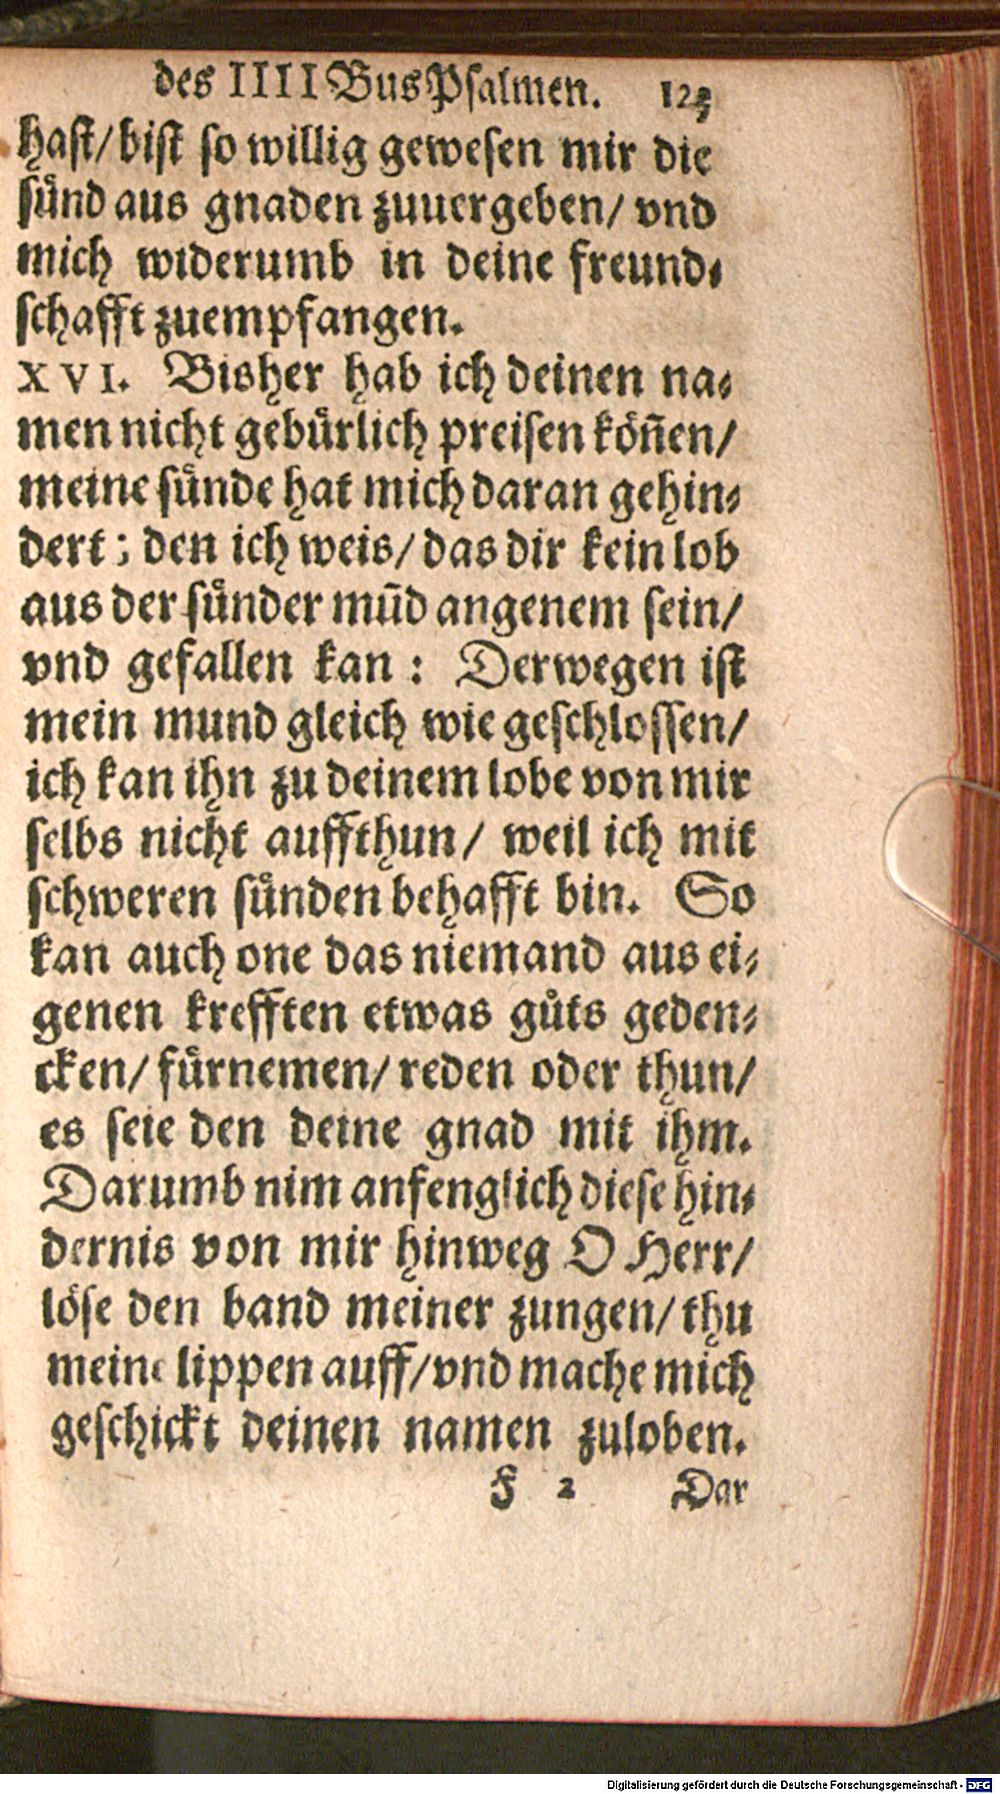 des IIII BusPsalmen. 123
hast/ bist so willig gewesen mir die
sůnd aus gnaden zuuergeben/ vnd
mich widerumb in deine freund⸗
schafft zuempfangen.
XVI. Bisher hab ich deinen na⸗
men nicht gebůrlich preisen kōn̄en/
meine sůnde hat mich daran gehin⸗
dert; den ich weis/ das dir kein lob
aus der sůnder mūd angenem sein/
vnd gefallen kan: Derwegen ist
mein mund gleich wie geschlossen/
ich kan ihn zu deinem lobe von mir
selbs nicht auffthun/ weil ich mit
schweren sůnden behafft bin. So
kan auch one das niemand aus ei⸗
genen krefften etwas gůts geden⸗
cken/ fůrnemen/ reden oder thun/
es seie den deine gnad mit ihm.
Darumb nim anfenglich diese hin⸗
dernis von mir hinweg O Herr/
löse den band meiner zungen/ thu
meine lippen auff/ vnd mache mich
geschickt deinen namen zuloben.
F 2 Dar
Digitalisierung gefördert durch die Deutsche Forschungsgemeinschaft - DFG